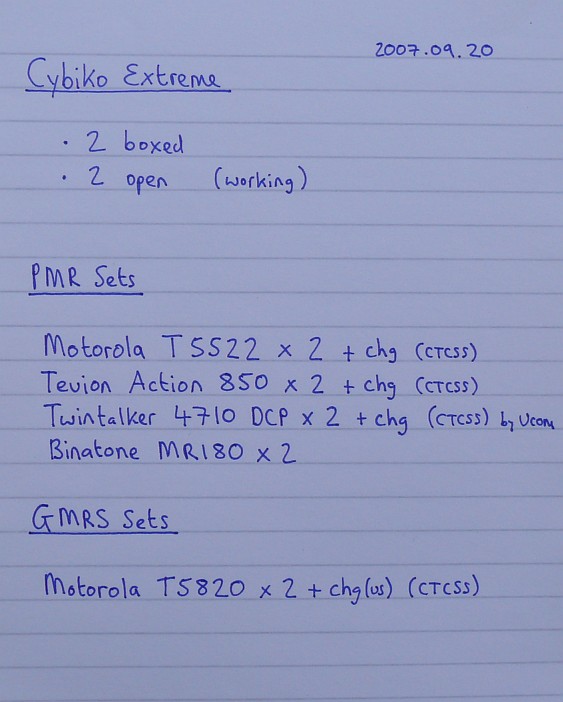 2007.09.20
Cybiko Extreme
· 2 boxed
· 2 open (working)
PMR Sets
Motorola T5522 x 2 + chg (CTCSS)
Tevion Action 850 x 2 + chg (CTCSS)
Twintalker 4710 DCP x 2 + chg (CTCSS) by Ucom
Binatone MR180 x 2
GMRS Sets
Motorola T5820 x 2 + chg(us) (CTCSS)